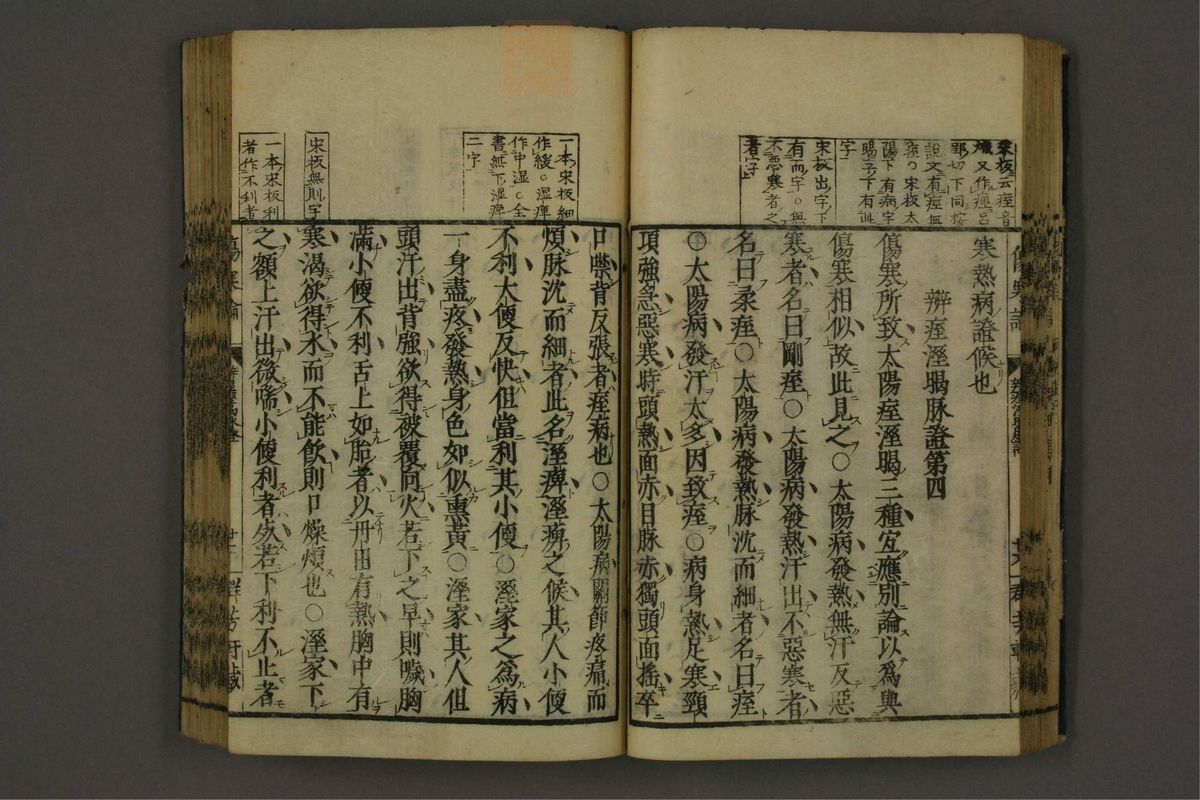 宋板云痓音
熾又作痙巨
郢切下同按
說文有痙無
痓○宋板太
陽下有病字
暍字下有此
字
宋板出字下
有而字○無
不惡寒者之
者字
寒熱病證候也
辨痓溼暍脉證第四
傷寒所致太陽痓溼暍三種宜應別論以爲與
傷寒相似故此見之○太陽病發熱無汗反惡
寒者名曰剛痓○太陽病發熱汗出不惡寒者
名曰柔痓○太陽病發熱脉沈而細者名曰痓
○太陽病發汗太多因致痓○病身熱足寒頸
項強急惡寒時頭熱面赤目脉赤獨頭面搖卒
一本宋板細
作緩○湿痺
作中湿○全
書無下湿痺
二字
宋板無則字
一本宋板利
者作不利者
口噤背反張者痓病也○太陽病關節疼痛而
煩脉沈而細者此名溼痺溼痺之候其人小便
不利大便反快但當利其小便○溼家之爲病
一身盡疼發熱身色如似熏黃○溼家其人但
頭汗出背強欲得被覆向火若下之早則噦胸
滿小便不利舌上如胎者以丹田有熱胸中有
寒渴欲得水而不能飮則口燥煩也○溼家下
之額上汗出微喘小便利者死若下利不止者
傷寒論